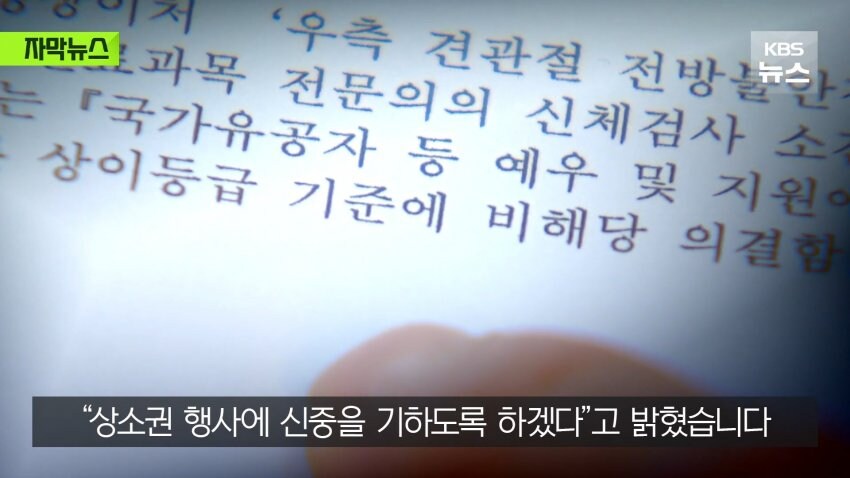 자막뉴스
KBS
뉴스
‘우측 견관절 전방불안
과목 전문의의 신체검사 소
는 『국가유공자 등 예우 및 지원
상이등급 기준에 비해당 의결함
“상소권 행사에 신중을 기하도록 하겠다”고 밝혔습니다